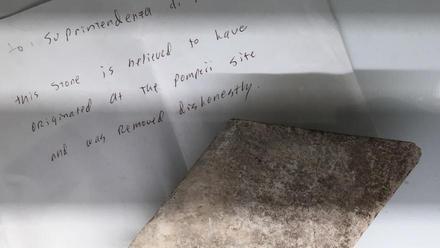 to: Suprintendenza di
this stone is believed to have
originated at the pompeii site
and was removed dishonestly.